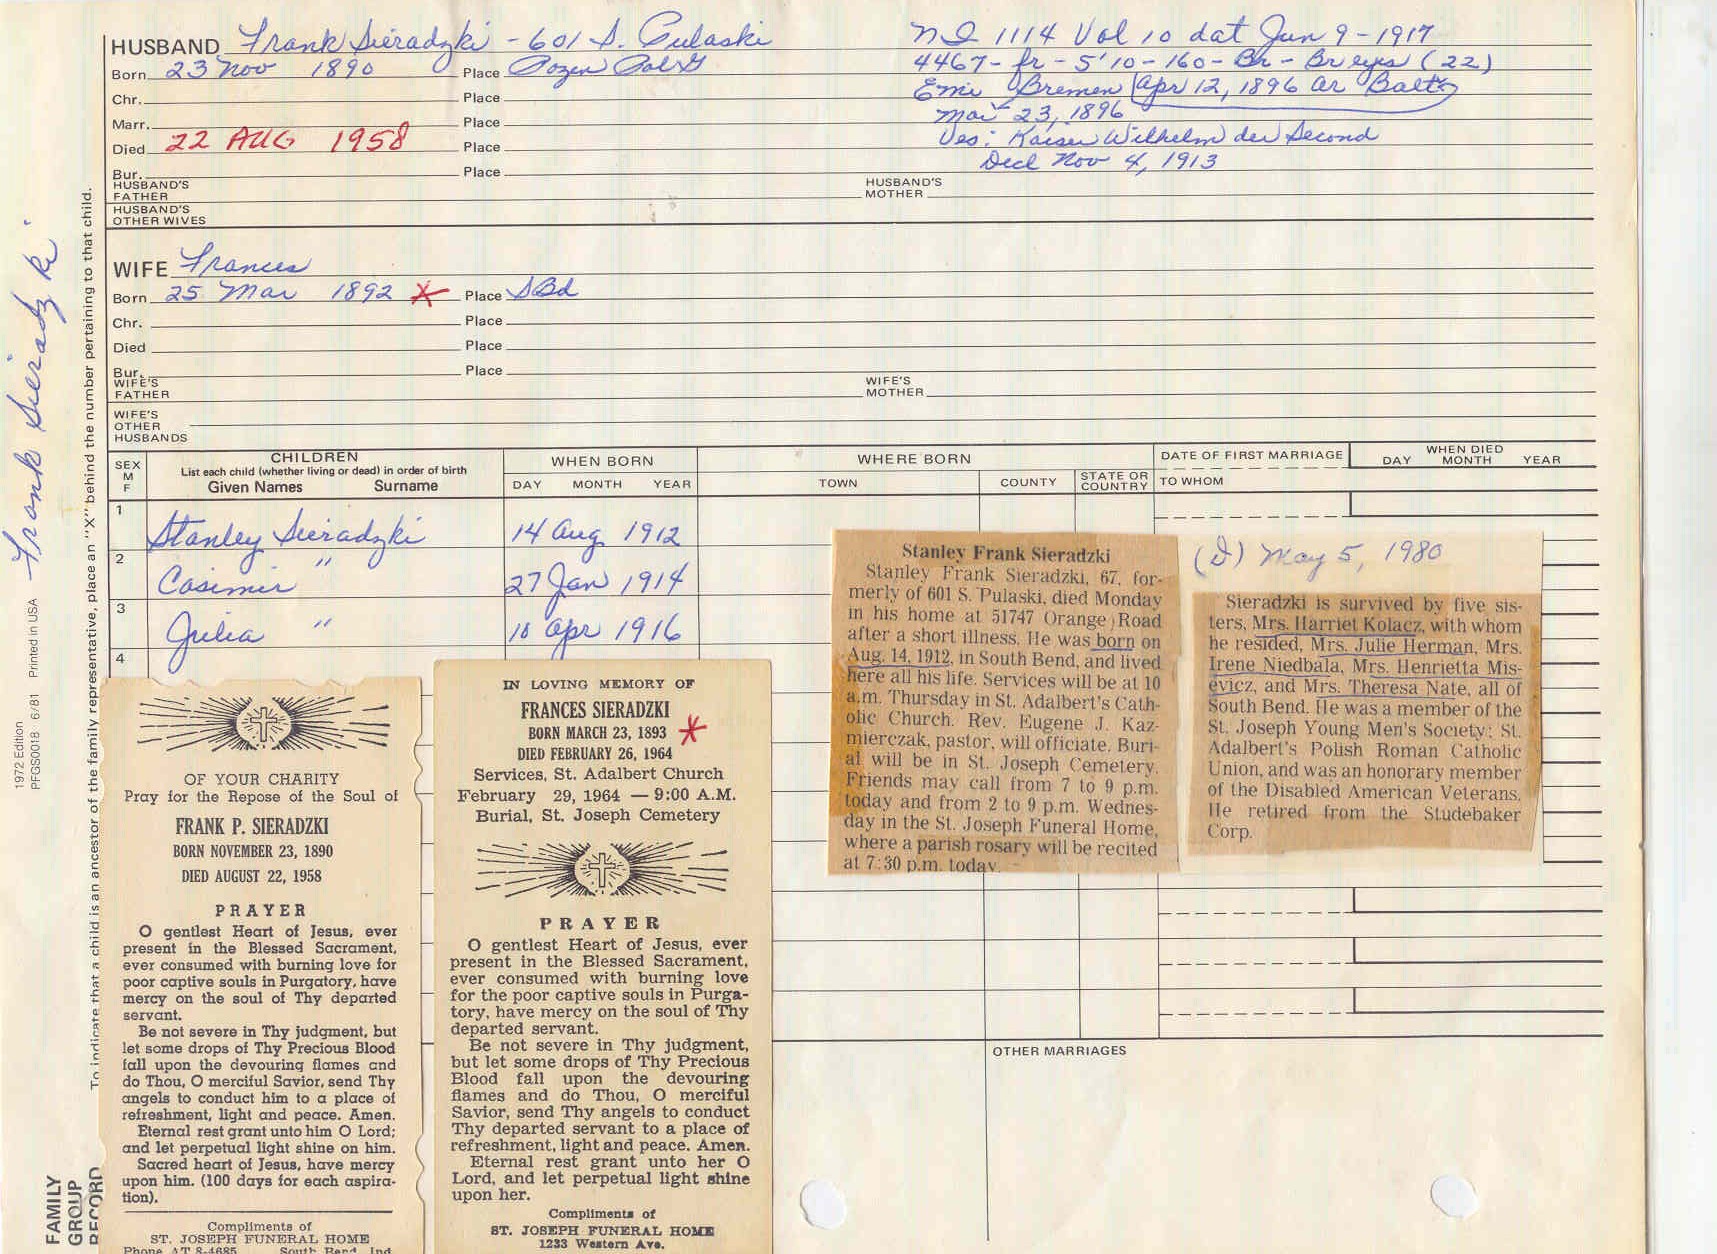 HUSBAND Frank Sieradzki - 601 S. Pulaski
Born 23 Nov 1890 Place Pozen Pol G
Chr. Place
Marr. Place
Died 22 AUG 1958 Place
Bur. Place
NI 1114 Vol 10 dat Jun 9-1917
4467- fr - 5'10 - 160 - Br - Br eyes (22)
Emi Bremen Apr 12, 1896 ar Balt
Mar 23, 1896
Ves: Kaiser Wilhelm der Second
Decl Nov 4, 1913
HUSBAND'S
FATHER
HUSBAND'S
MOTHER
HUSBAND'S
OTHER WIVES
WIFE Frances
Born 25 Mar 1892 X Place SBd
Chr. Place
Died Place
Bur. Place
WIFE'S
FATHER
WIFE'S
MOTHER
WIFE'S
OTHER
HUSBANDS
SEX
M
F
CHILDREN
List each child (whether living or dead) in order of birth
Given Names Surname
WHEN BORN
DAY MONTH YEAR
WHERE BORN
TOWN COUNTY STATE OR COUNTRY
DATE OF FIRST MARRIAGE
TO WHOM
WHEN DIED
DAY MONTH YEAR
1 Stanley Sieradzki 14 Aug 1912
2 Casimir " 27 Jan 1914
3 Julia " 10 Apr 1916
4
Stanley Frank Sieradzki
Stanley Frank Sieradzki, 67, for-
merly of 601 S. Pulaski, died Monday
in his home at 51747 Orange Road
after a short illness. He was born on
Aug. 14, 1912, in South Bend, and lived
here all his life. Services will be at 10
a.m. Thursday in St. Adalbert's Cath-
olic Church. Rev. Eugene J. Kaz-
mierczak, pastor, will officiate. Buri-
al will be in St. Joseph Cemetery.
Friends may call from 7 to 9 p.m.
today and from 2 to 9 p.m. Wednes-
day in the St. Joseph Funeral Home,
where a parish rosary will be recited
at 7:30 p.m. today.
(D) May 5, 1980
Sieradzki is survived by five sis-
ters, Mrs. Harriet Kolacz, with whom
he resided, Mrs. Julie Herman, Mrs.
Irene Niedbala, Mrs. Henrietta Mis-
evicz, and Mrs. Theresa Nate, all of
South Bend. He was a member of the
St. Joseph Young Men's Society; St.
Adalbert's Polish Roman Catholic
Union, and was an honorary member
of the Disabled American Veterans.
He retired from the Studebaker
Corp.
OF YOUR CHARITY
Pray for the Repose of the Soul of
FRANK P. SIERADZKI
BORN NOVEMBER 23, 1890
DIED AUGUST 22, 1958
PRAYER
O gentlest Heart of Jesus, ever
present in the Blessed Sacrament,
ever consumed with burning love for
poor captive souls in Purgatory, have
mercy on the soul of Thy departed
servant.
Be not severe in Thy judgment, but
let some drops of Thy Precious Blood
fall upon the devouring flames and
do Thou, O merciful Savior, send Thy
angels to conduct him to a place of
refreshment, light and peace. Amen.
Eternal rest grant unto him O Lord;
and let perpetual light shine on him.
Sacred heart of Jesus, have mercy
upon him. (100 days for each aspira-
tion).
Compliments of
ST. JOSEPH FUNERAL HOME
Phone AT 8-4685 South Bend, Ind.
IN LOVING MEMORY OF
FRANCES SIERADZKI
BORN MARCH 23, 1893
DIED FEBRUARY 26, 1964
Services, St. Adalbert Church
February 29, 1964 — 9:00 A.M.
Burial, St. Joseph Cemetery
PRAYER
O gentlest Heart of Jesus, ever
present in the Blessed Sacrament,
ever consumed with burning love
for the poor captive souls in Purga-
tory, have mercy on the soul of Thy
departed servant.
Be not severe in Thy judgment,
but let some drops of Thy Precious
Blood fall upon the devouring
flames and do Thou, O merciful
Savior, send Thy angels to conduct
Thy departed servant to a place of
refreshment, light and peace. Amen.
Eternal rest grant unto her O
Lord, and let perpetual light shine
upon her.
Compliments of
ST. JOSEPH FUNERAL HOME
1233 Western Ave.
OTHER MARRIAGES
Frank Sieradzki
To indicate that a child is an ancestor of the family representative, place an "X" behind the number pertaining to that child.
1972 Edition
PFGS0018 6/81 Printed in USA
FAMILY
GROUP
RECORD